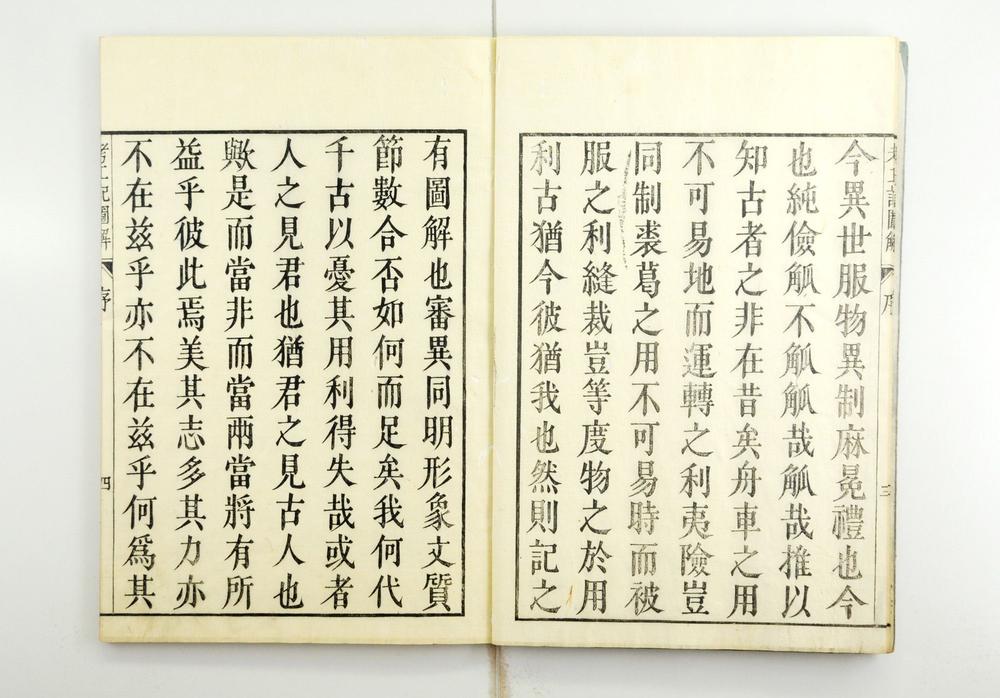 今異世服物異制麻冕禮也今
也純儉觚不觚觚哉觚哉推以
知古者之非在昔矣舟車之用
不可易地而運轉之利夷險豈
同制裘葛之用不可易時而被
服之利縫裁豈等度物之於用
利古猶今彼猶我也然則記之
三
有圖解也審異同明形象文質
節數合否如何而足矣我何代
千古以憂其用利得失哉或者
人之見君也猶君之見古人也
歟是而當非而當兩當將有所
益乎彼此焉美其志多其力亦
不在兹乎亦不在兹乎何爲其
考工記圖解
序
四